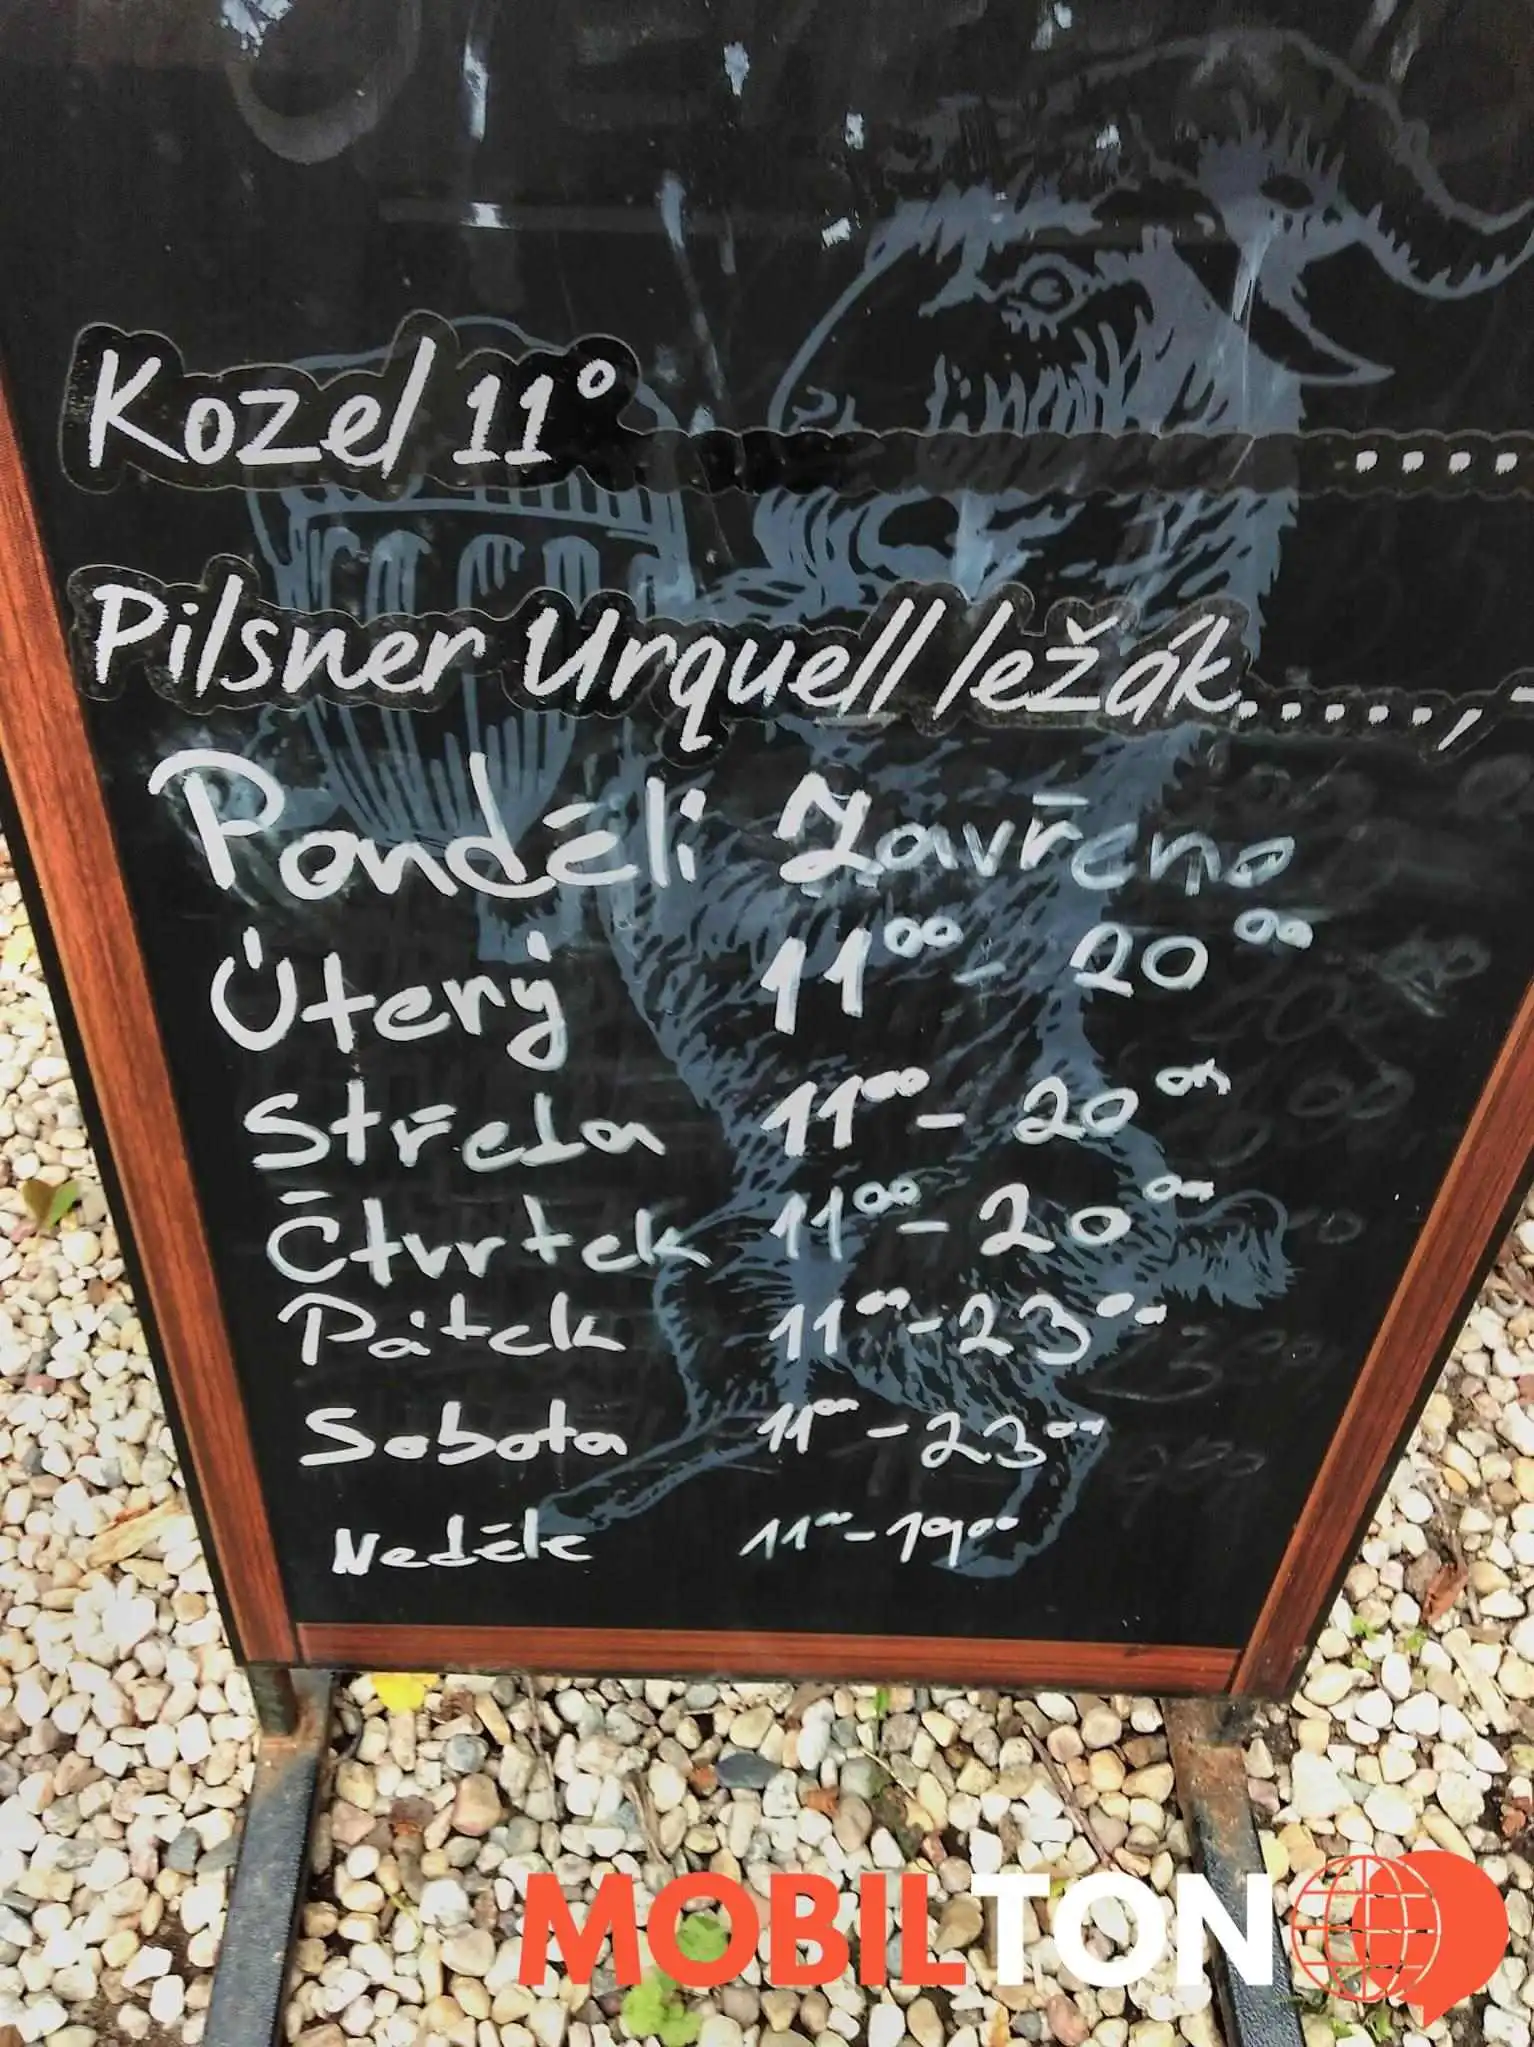 Kozel 11° ....
Pilsner Urquell ležák.....,-
Pondělí Zavřeno
Úterý 11⁰⁰ - 20⁰⁰
Středa 11⁰⁰ - 20⁰⁰
Čtvrtek 11⁰⁰ - 20⁰⁰
Pátek 11⁰⁰ - 23⁰⁰
Sobota 11⁰⁰ - 23⁰⁰
Neděle 11⁰⁰ - 19⁰⁰
MOBILTON